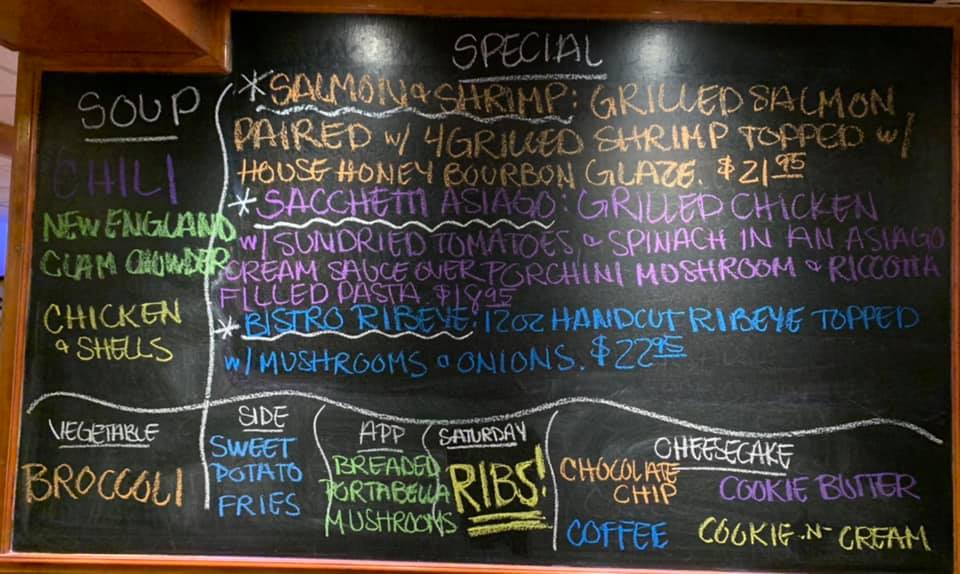 SOUP
CHILI
NEW ENGLAND
CLAM CHOWDER
CHICKEN
& SHELLS
SPECIAL
*SALMON & SHRIMP: GRILLED SALMON
PAIRED w/ 4 GRILLED SHRIMP TOPPED w/
HOUSE HONEY BOURBON GLAZE. $21.95
*SACCHETTI ASIAGO: GRILLED CHICKEN
w/ SUNDRIED TOMATOES & SPINACH IN AN ASIAGO
CREAM SAUCE OVER PORCHINI MUSHROOM & RICCOTTA
FILLED PASTA $18.95
*BISTRO RIBEYE: 12oz HANDCUT RIBEYE TOPPED
w/ MUSHROOMS & ONIONS. $22.95
VEGETABLE
BROCCOLI
SIDE
SWEET
POTATO
FRIES
APP
BREADED
PORTABELLA
MUSHROOMS
SATURDAY
RIBS!
CHEESECAKE
CHOCOLATE
CHIP
COOKIE BUTTER
COFFEE
COOKIE -N- CREAM